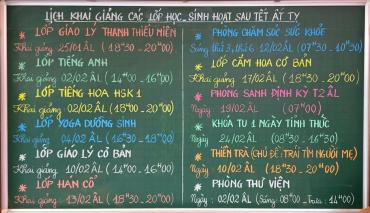 LỊCH KHAI GIẢNG CÁC LỚP HỌC - SINH HOẠT SAU TẾT ẤT TỴ
LỚP GIÁO LÝ THANH THIẾU NIÊN
Khai giảng 25/01 ÂL (18H30 - 20H00)
LỚP TIẾNG ANH
Khai giảng 02/02 ÂL (14H00 - 16H00)
LỚP TIẾNG HOA HSK1
Khai giảng 02/02 ÂL (18H00 - 20H00)
LỚP YOGA DƯỠNG SINH
Khai giảng 04/02 ÂL (16H30 - 18H00)
LỚP GIÁO LÝ CƠ BẢN
Khai giảng 10/02 ÂL (14H00 - 16H00)
LỚP HÁN CỔ
Khai giảng 13/02 ÂL (18H30 - 20H00)
PHÒNG CHĂM SÓC SỨC KHỎE
Sáng thứ 3, thứ 6 12/02 ÂL (07H30 - 10H30)
LỚP CẮM HOA CƠ BẢN
Khai giảng 17/02 ÂL (18H30 - 20H30)
PHÓNG SANH ĐỊNH KỲ T2 ÂL
Ngày 19/02 ÂL (07H00)
KHÓA TU 1 NGÀY TỈNH THỨC
Ngày 24/02 ÂL (08H30 - 16H30)
THIỀN TRÀ (CHỦ ĐỀ: TRÁI TIM NGƯỜI MẸ)
Ngày 10/02 ÂL (18H30 - 20H00)
PHÒNG THƯ VIỆN
Ngày 02/02 ÂL (Sáng: 08H00 - Trưa: 14H00)